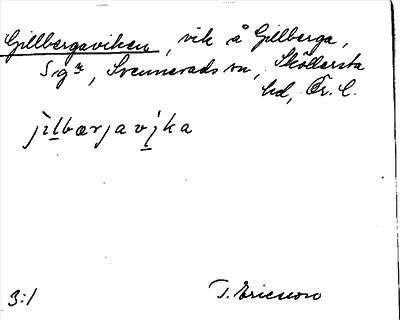 Gillbergaviken, vik å Gillberga,
Svennevads sn, Sköllersta
hd, Ör. l.
jìlbærjavika
3:1 T. Ericsson